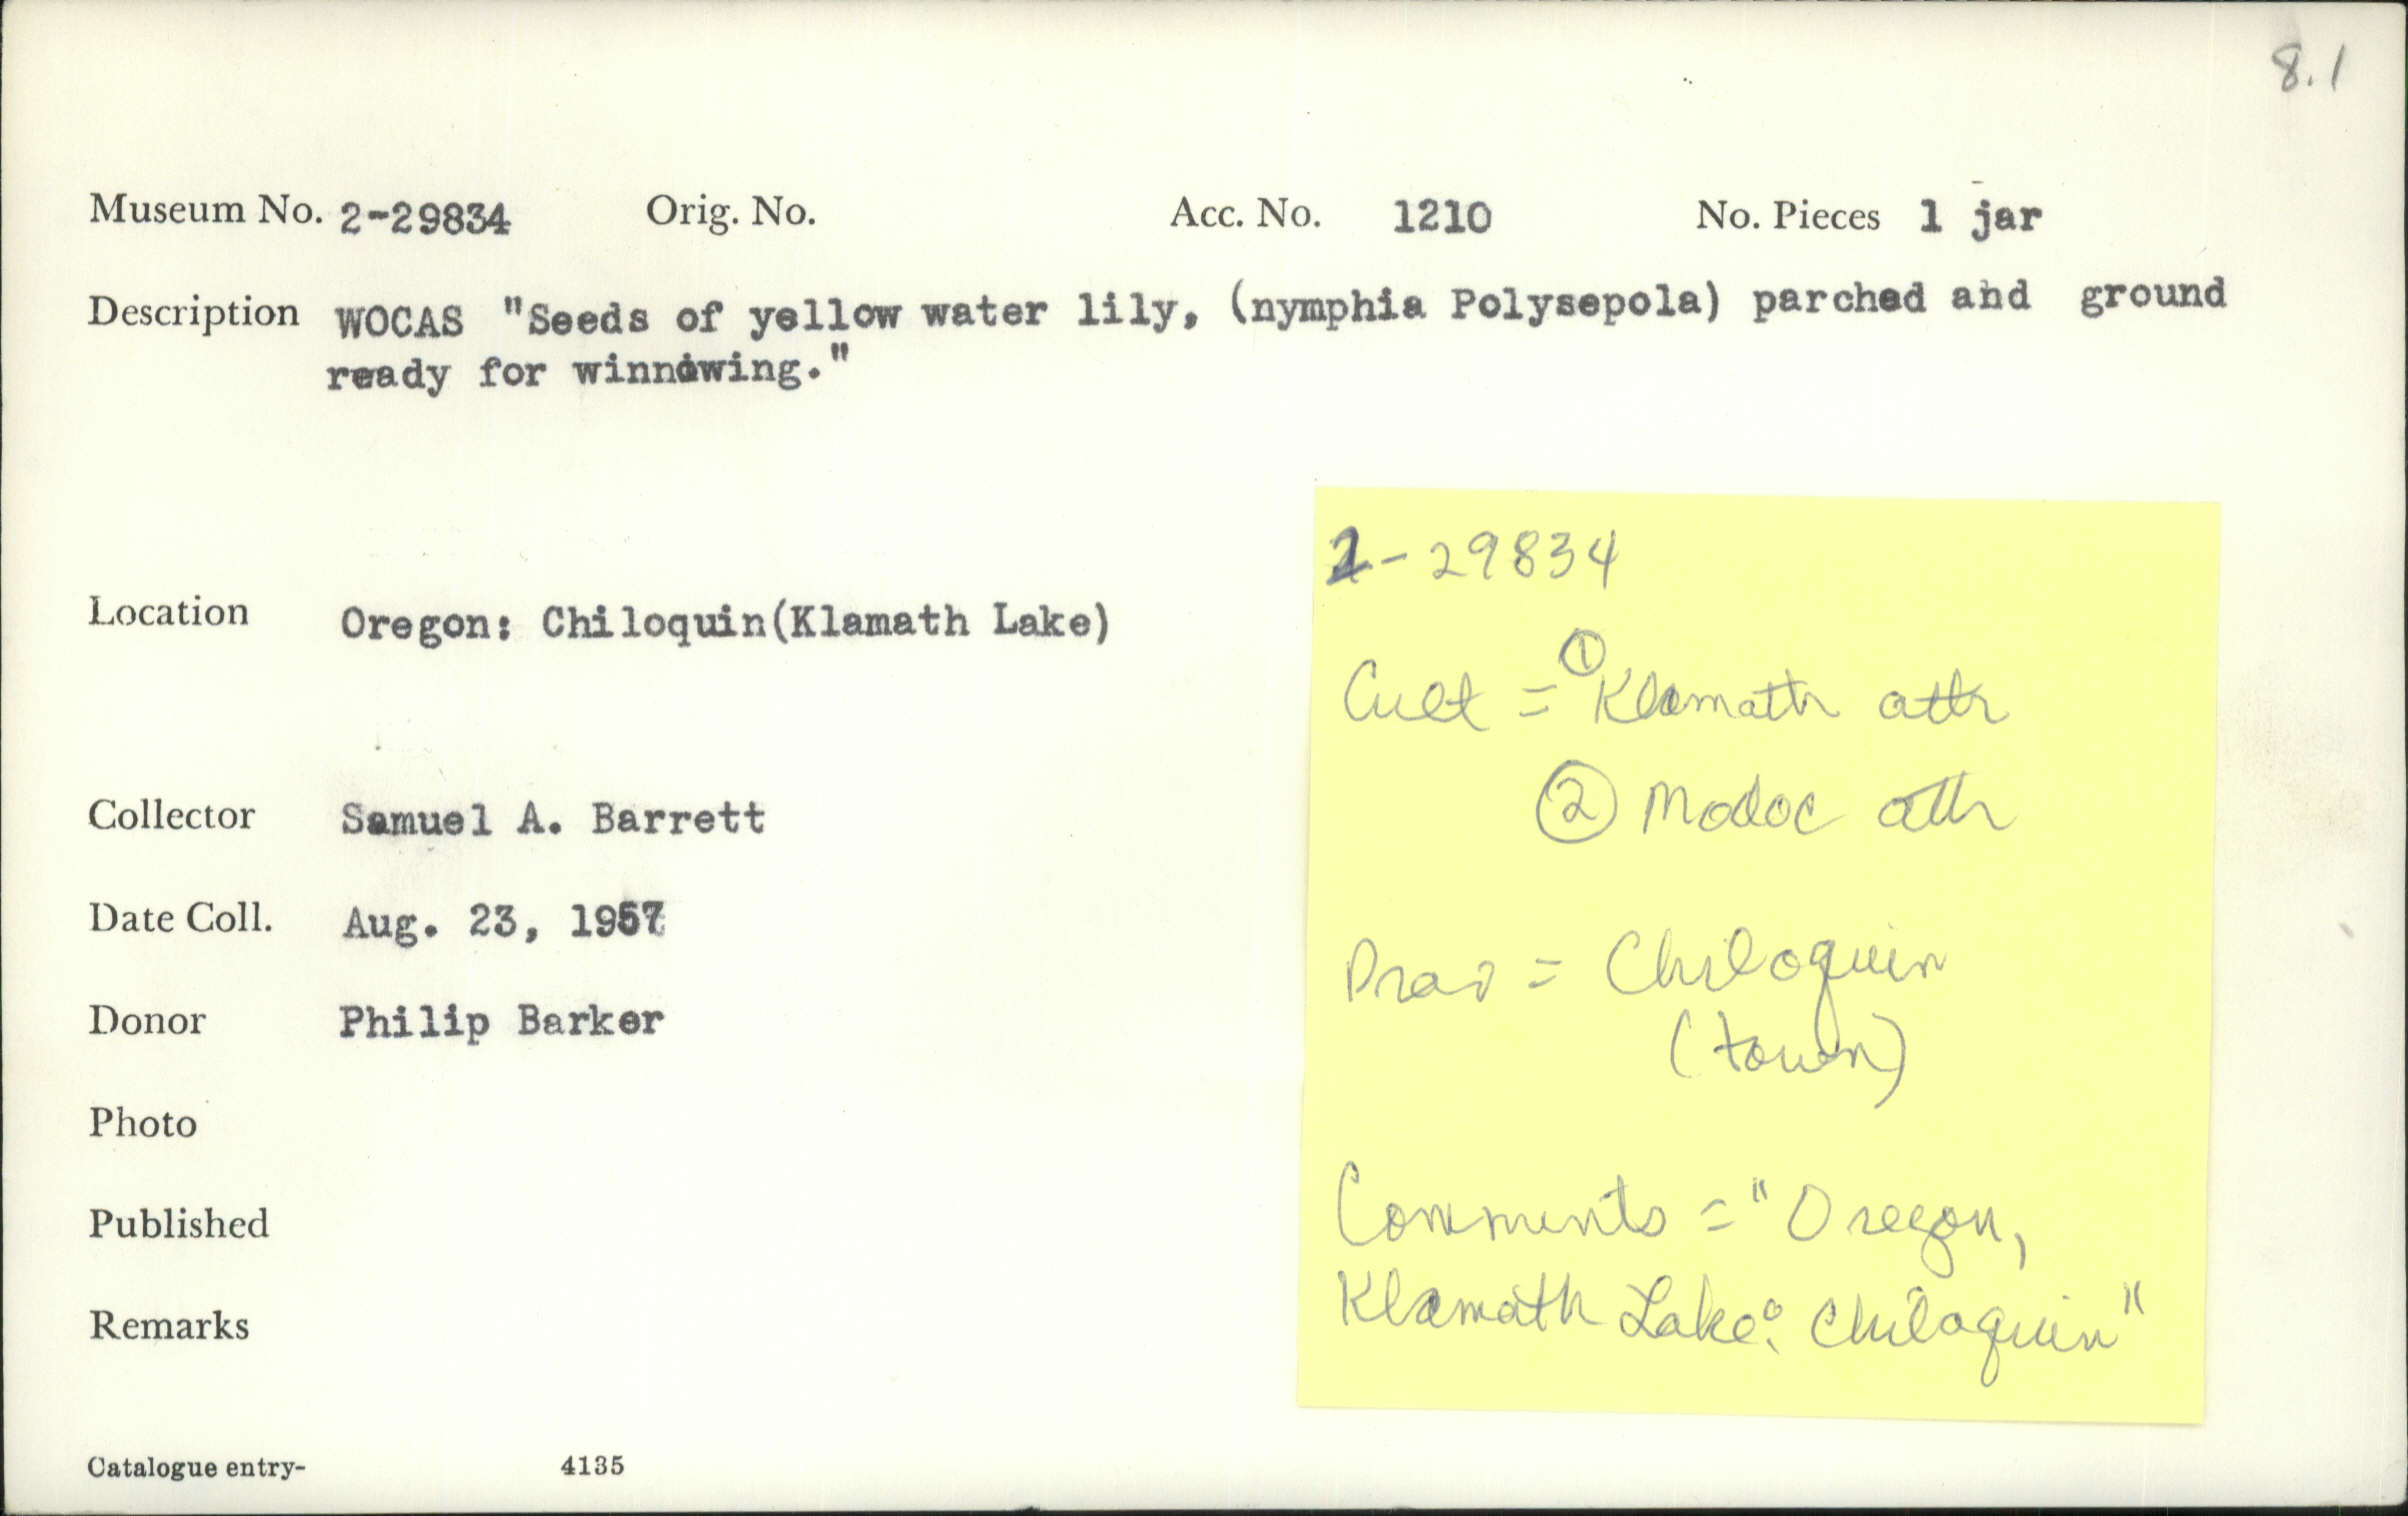 8.1
Museum No. 2-29834 Orig. No. Acc. No. 1210 No. Pieces 1 jar
Description WOCAS "Seeds of yellow water lily, (nymphia Polysepola) parched and ground
ready for winnowing."
2-29834
Location Oregon: Chiloquin(Klamath Lake)
Cult = ① Klamath attr
② Modoc attr
Collector Samuel A. Barrett
Date Coll. Aug. 23, 1957
Prov = Chiloquin
(town)
Donor Philip Barker
Photo
Published
Comments = "Oregon,
Klamath Lake: Chiloquin"
Remarks
Catalogue entry- 4135